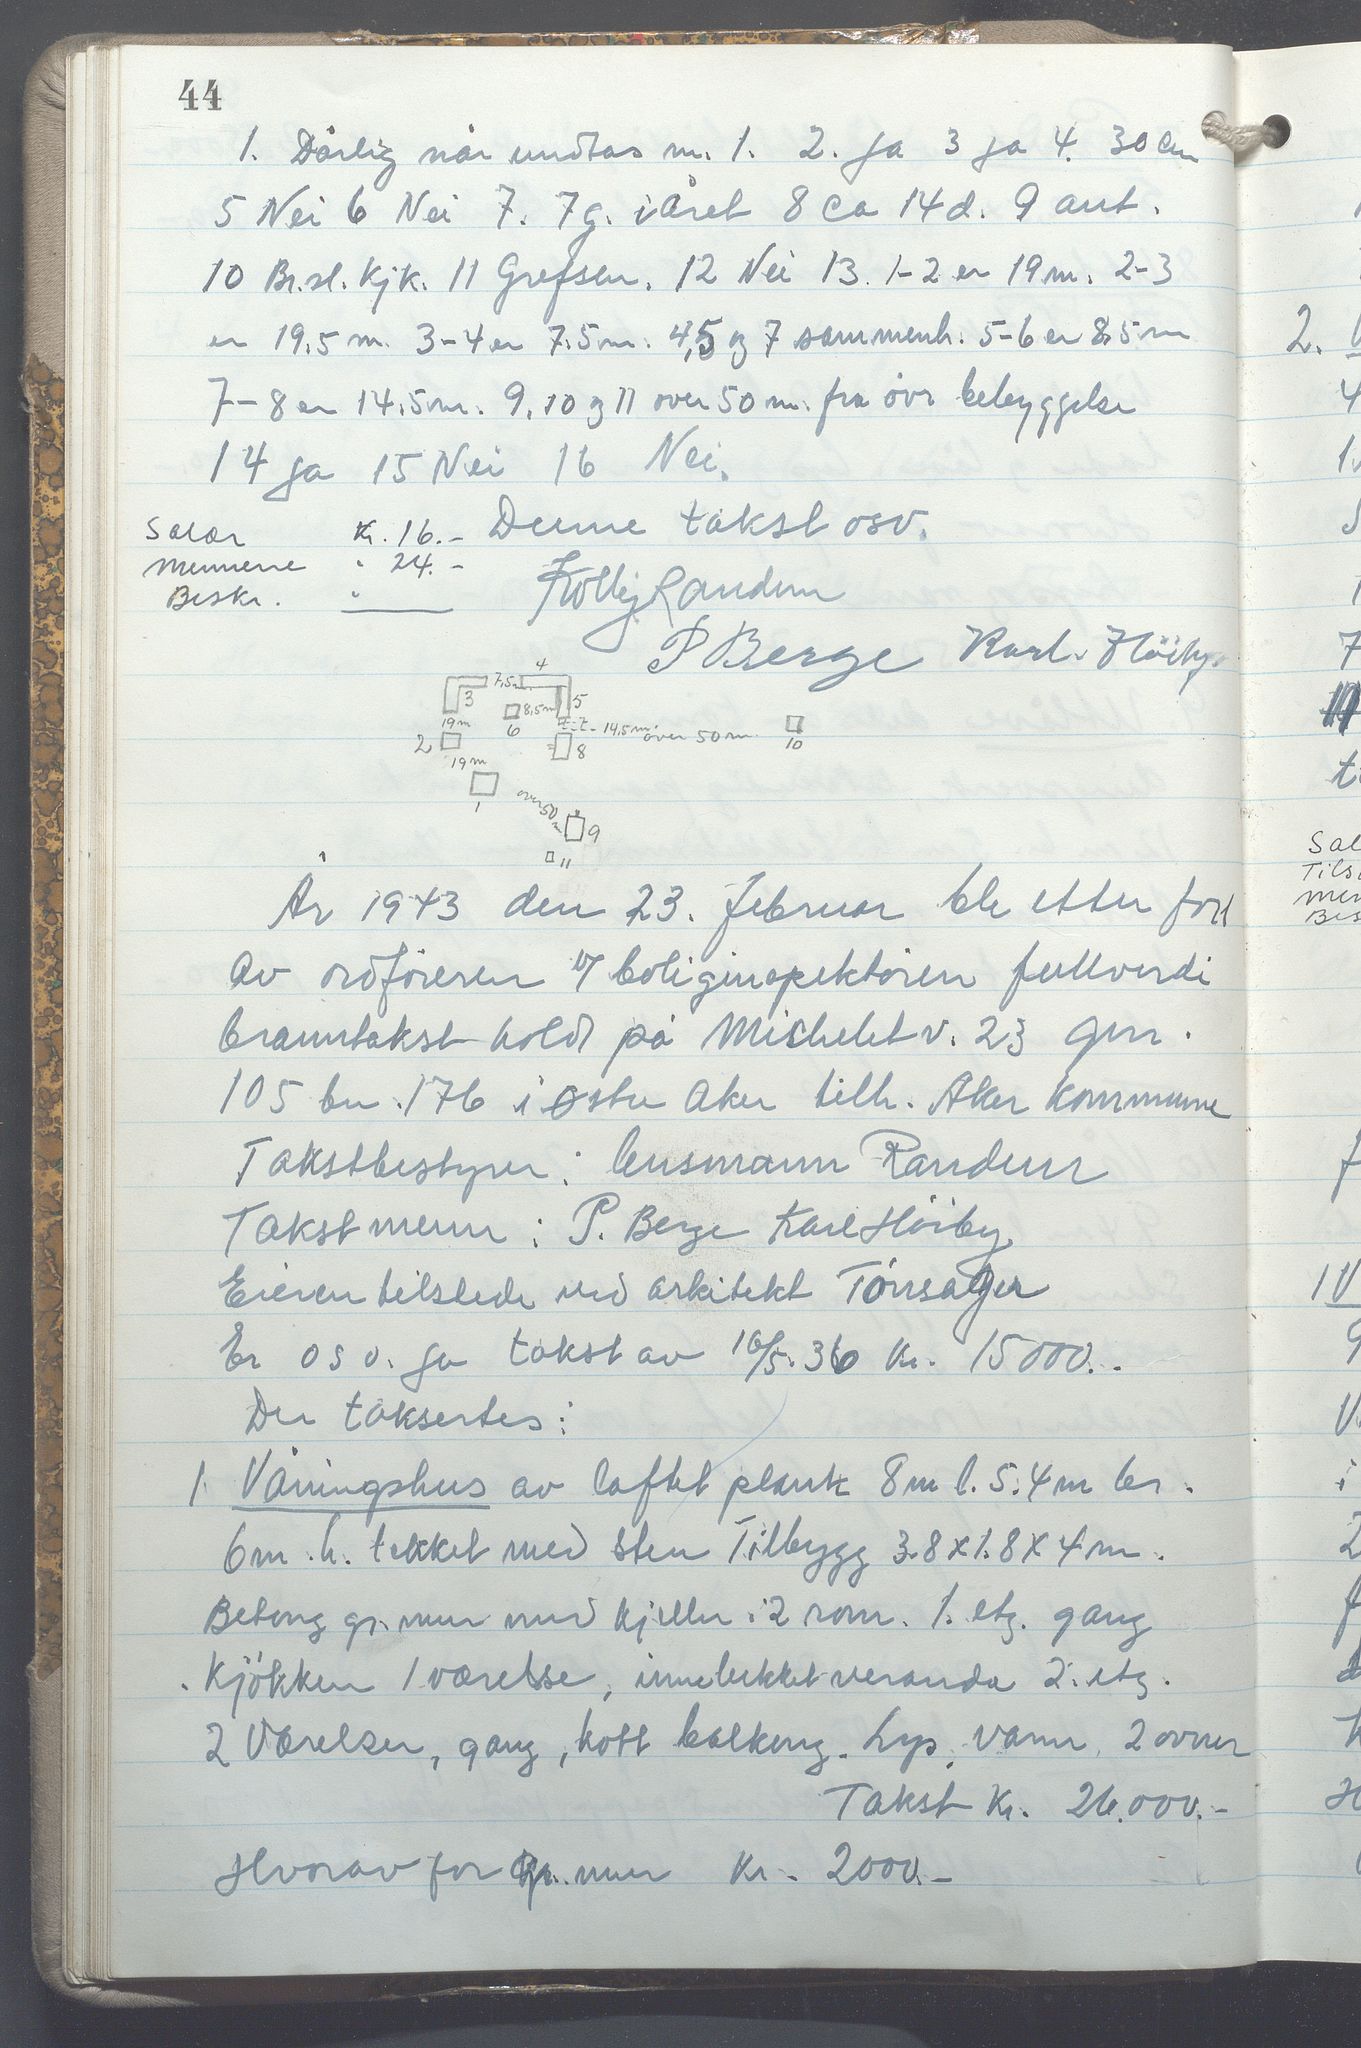 44
1. Dårlig når undtas nr. 1. 2. ja 3 ja 4. 30 cm
5 Nei 6 Nei 7. 7 g. i året 8 ca 14 d. 9 ant.
10 Br.sl. kjk. 11 Grefsen. 12 Nei 13. 1-2 er 19 m. 2-3
er 19.5 m. 3-4 er 7.5 m. 4,5 og 7 sammenh. 5-6 er 8.5 m
7-8 er 14.5 m. 9, 10 og 11 over 50 m. fra övr bebyggelse
14 ja 15 Nei 16 Nei.
Salær Kr. 16.-
Mennene " 24.-
Beskr. "
Denne takst osv.
Randem
P Berge Karl Höiby
4
7,5 m
3 8,5 m 5
19 m 6 7 - 14,5 m over 50 m. 10
2 8
19 m
1 over 50 m 9
11
År 1943 den 23. februar ble etter forl
av ordföreren v/ boliginspektören fullverdi
branntakst hold på Michelet v. 23 gnr.
105 bn. 176 i östre Aker tilh. Aker kommune
Takstbestyrer: lensmann Randem
Takstmenn: P. Berge Karl Höiby
Eieren tilstede ved arkitekt Tönsager
Er osv. ja takst av 16/5. 36 kr. 15000.-
Der taksertes:
1. Våningshus av laftet plank 8 m l. 5.4 m br.
6 m. h. tekket med sten Tilbygg 3.8 x 1.8 x 4 m.
Betong gr. mur med kjeller i 2 rom. 1. etg. gang
kjökken 1 værelse, innelukket veranda 2. etg.
2 Værelser, gang, kott balkong. Lys, vann, 2 ovner
Takst Kr. 26.000.-
Hvorav for gr. mur kr. 2000.-